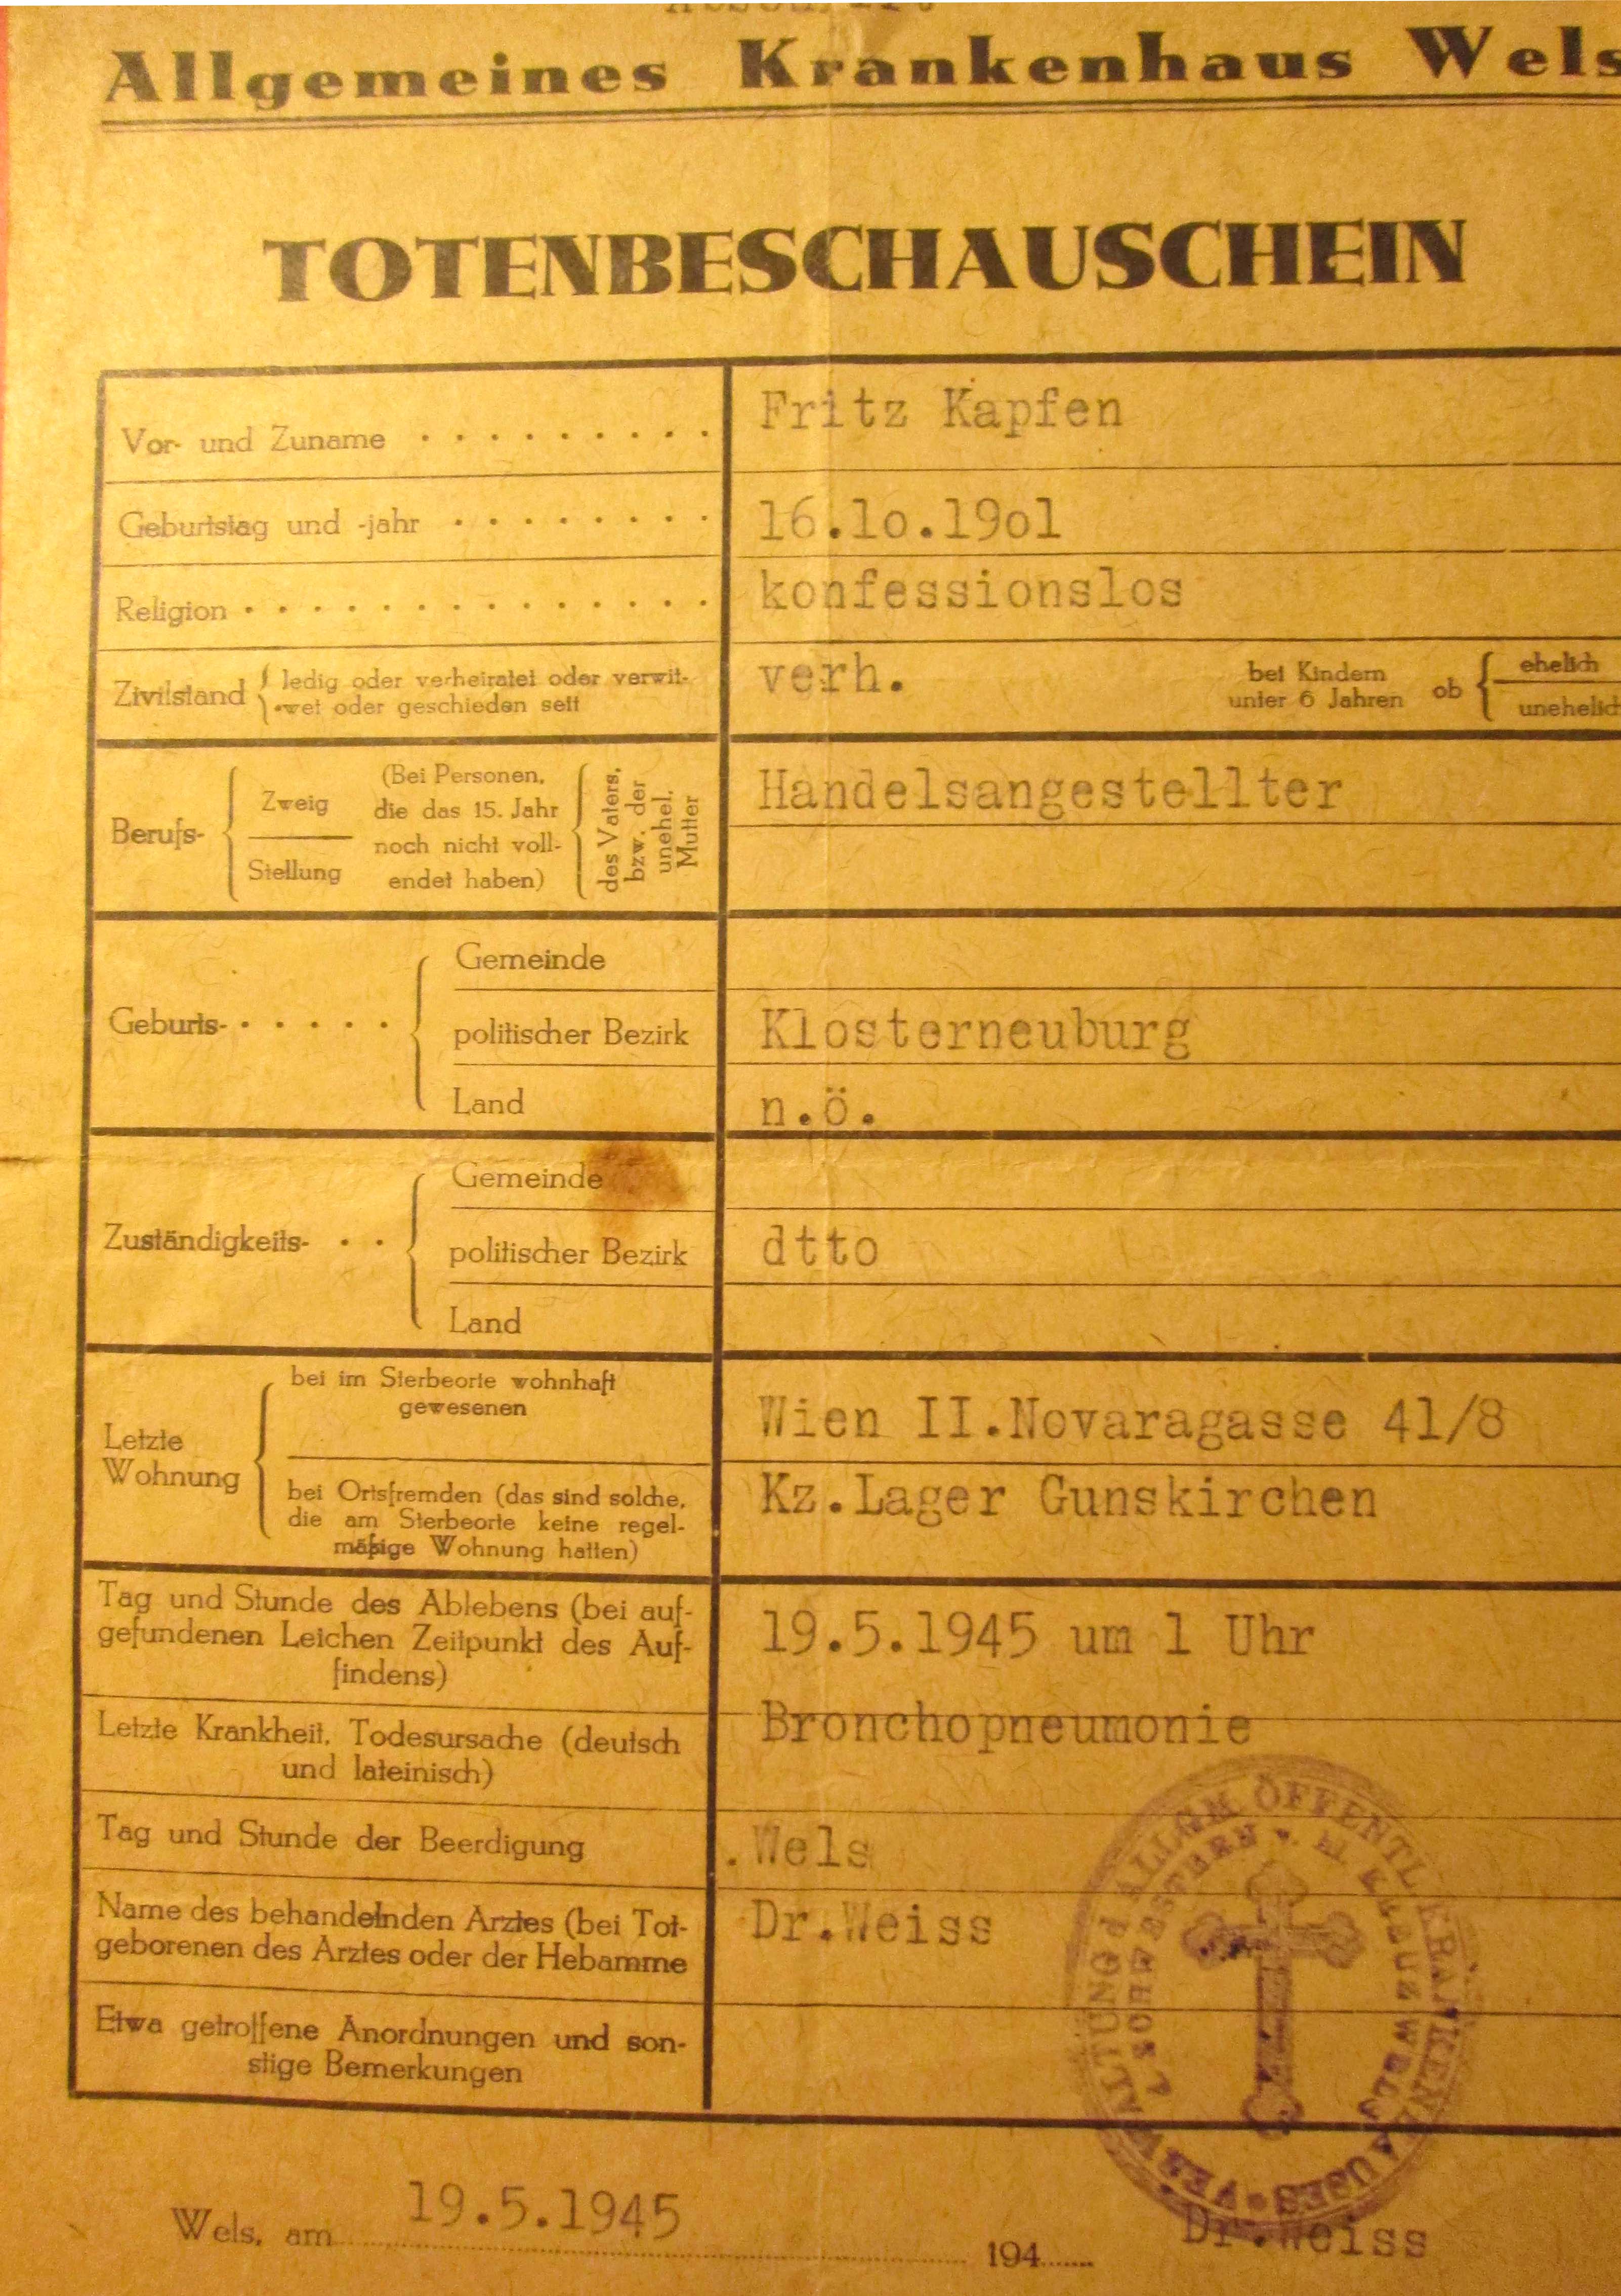 Abschrift
Allgemeines Krankenhaus Wels
TOTENBESCHAUSCHEIN
Vor- und Zuname . . . . . . . . . Fritz Kapfen
Geburtstag und -jahr . . . . . . . . 16.lo.19o1
Religion . . . . . . . . . . . . . . konfessionslos
Zivilstand { ledig oder verheiratet oder verwit- verh. bei Kindern unter 6 Jahren ob { ehelich
wet oder geschieden seit unehelich
Berufs- { Zweig (Bei Personen, die das 15. Jahr { des Vaters, bzw. der unehel. Mutter Handelsangestellter
Stellung noch nicht voll- endet haben)
Geburts- . . . . . { Gemeinde
politischer Bezirk Klosterneuburg
Land n.ö.
Zuständigkeits- . . { Gemeinde
politischer Bezirk dtto
Land
Letzte Wohnung { bei im Sterbeorte wohnhaft
gewesenen Wien II.Novaragasse 41/8
bei Ortsfremden (das sind solche, Kz.Lager Gunskirchen
die am Sterbeorte keine regel-
mäßige Wohnung hatten)
Tag und Stunde des Ablebens (bei auf-
gefundenen Leichen Zeitpunkt des Auf- 19.5.1945 um 1 Uhr
findens)
Letzte Krankheit, Todesursache (deutsch Bronchopneumonie
und lateinisch)
Tag und Stunde der Beerdigung .Wels
Name des behandelnden Arztes (bei Tot- Dr.Weiss
geborenen des Arztes oder der Hebamme
Etwa getroffene Anordnungen und son-
stige Bemerkungen
VERWALTUNG d. ALLGM ÖFFENTL KRANKENHAUSES
SCHWESTERN v. hl. KREUZ WELS
Wels, am 19.5.1945 194
Dr.Weiss